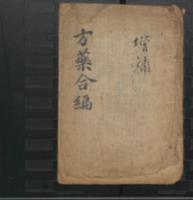 增補
方藥合編